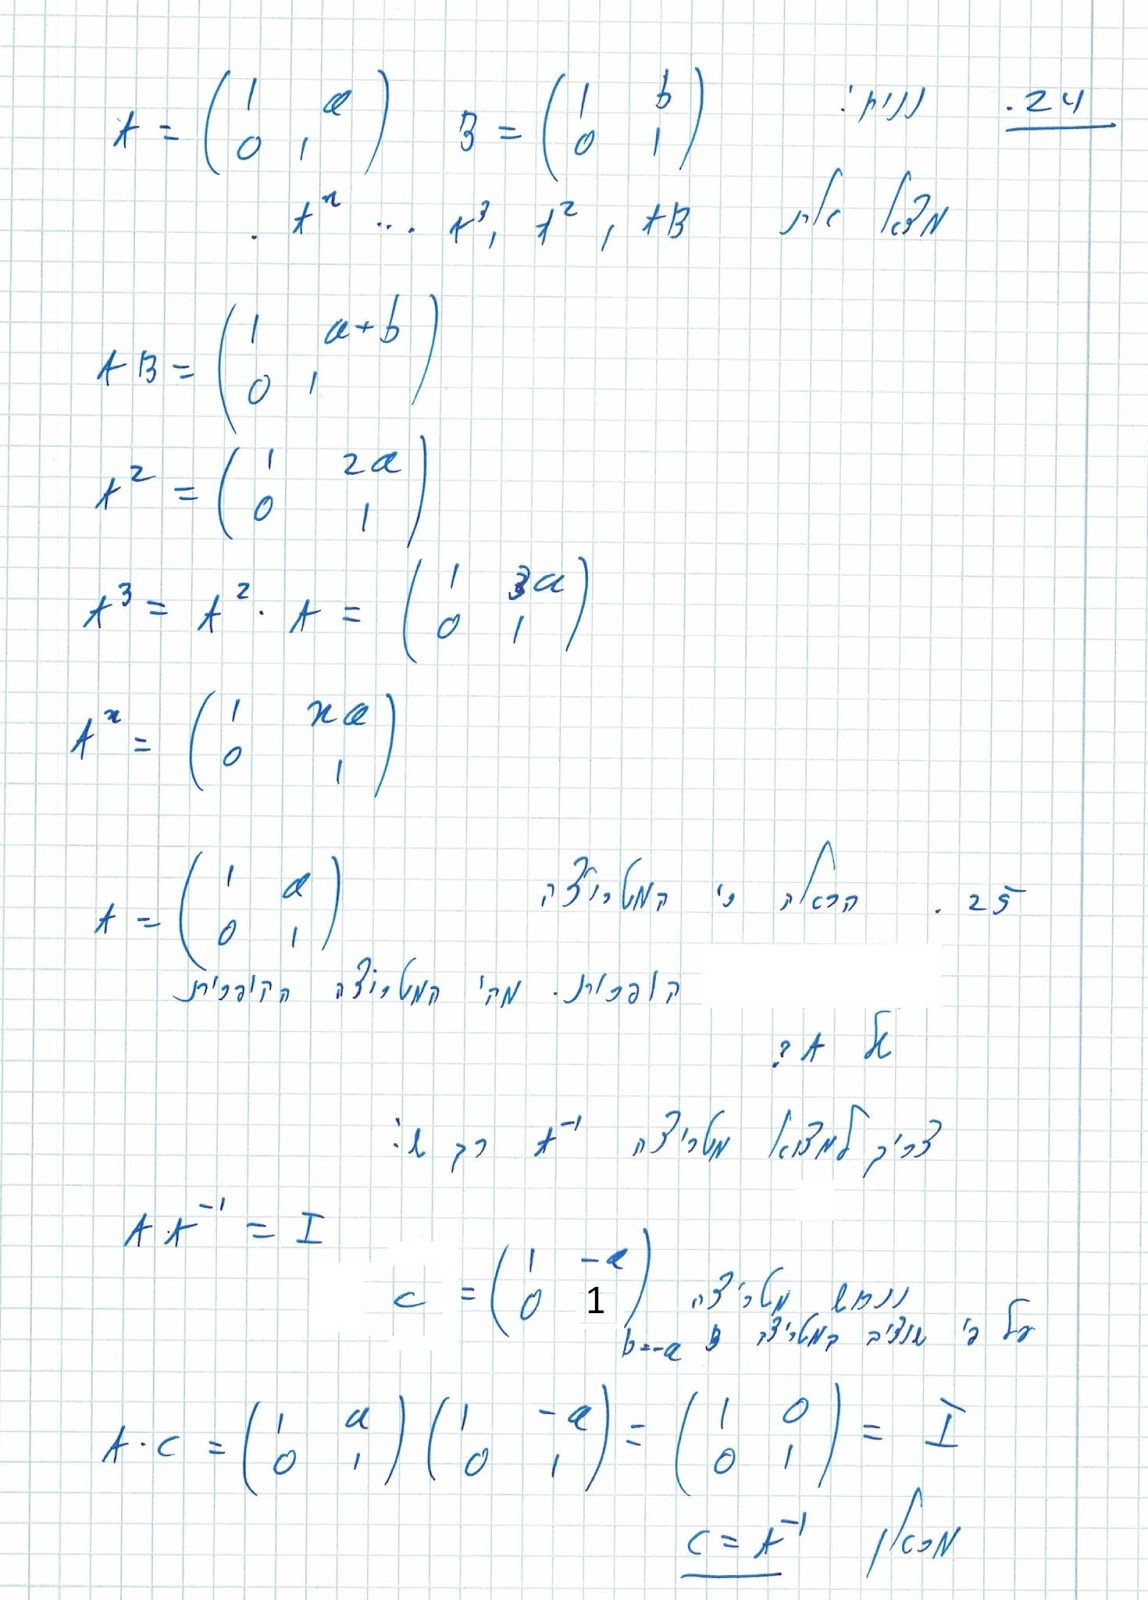 24. נניח: A = (1 a; 0 1) B = (1 b; 0 1)
מצא את AB, A², A³, ... Aⁿ.
AB = (1 a+b; 0 1)
A² = (1 2a; 0 1)
A³ = A² · A = (1 3a; 0 1)
Aⁿ = (1 na; 0 1)
25. הראה כי המטריצה A = (1 a; 0 1)
הופכית. מהי המטריצה ההופכית
של A?
צריך למצוא מטריצה A⁻¹ כך ש:
A A⁻¹ = I
ננחש מטריצה C = (1 -a; 0 1)
על כי נציב במטריצה B b=-a
A·C = (1 a; 0 1)(1 -a; 0 1) = (1 0; 0 1) = I
מכאן C = A⁻¹